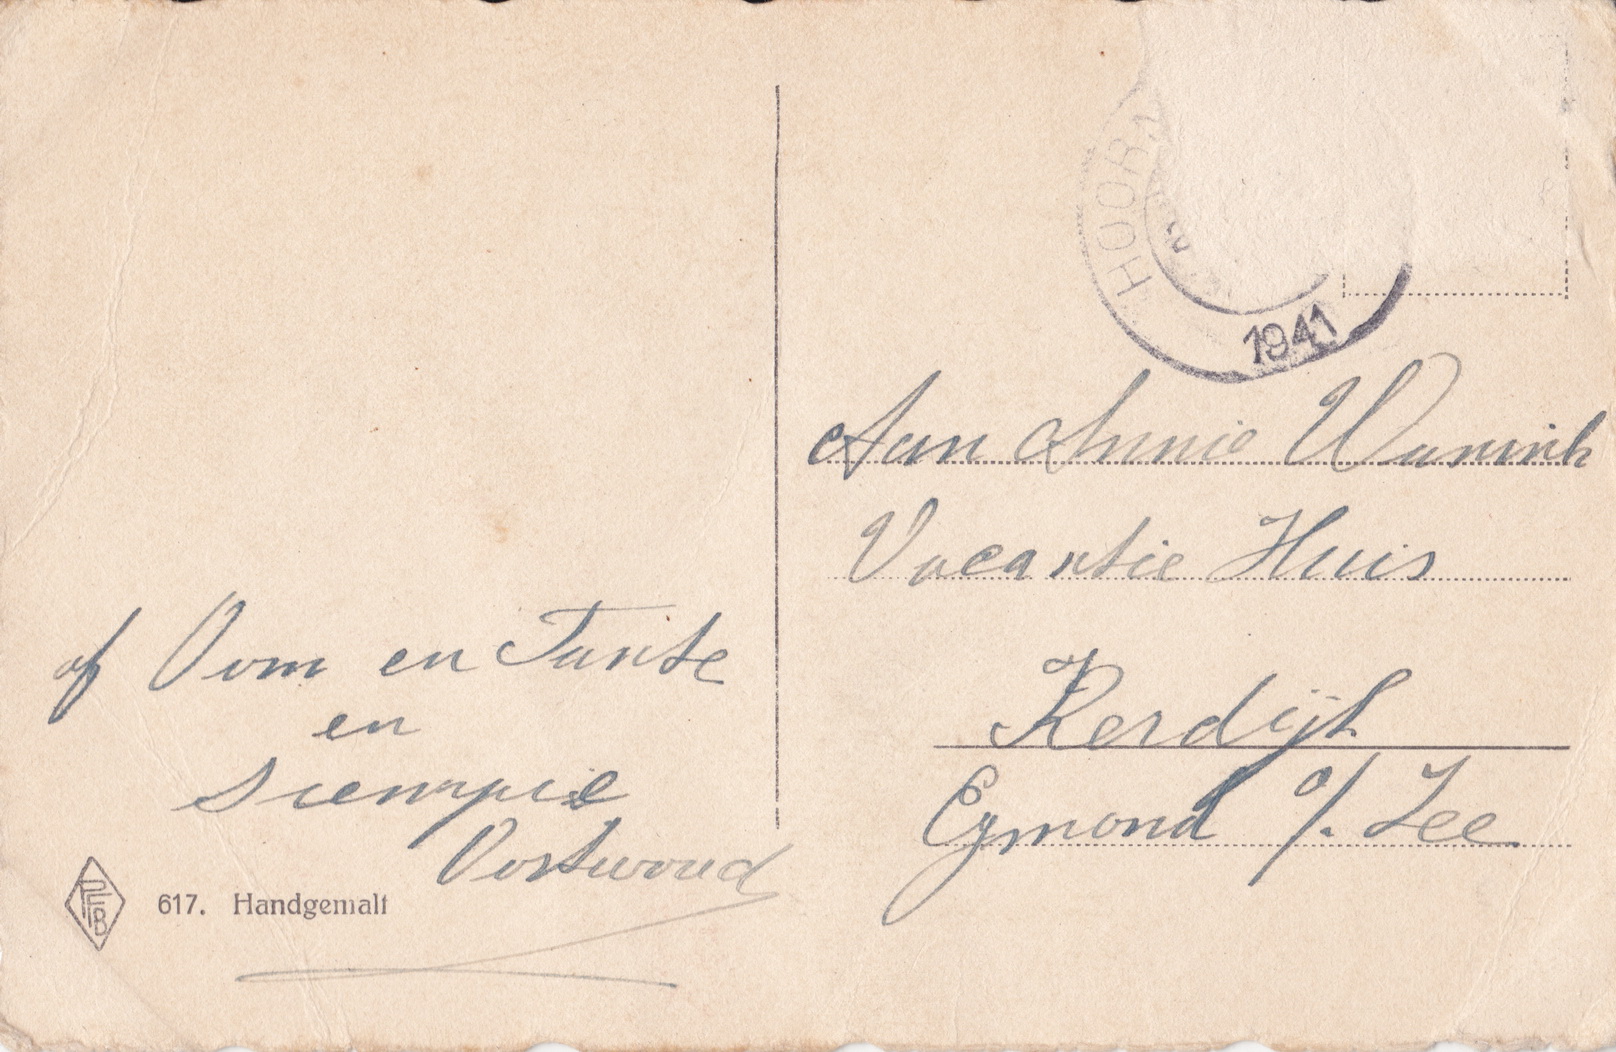 HOORN
1941
Aan Annie Wanink
Vacantie Huis
Kerdijk
Egmond a/. Zee
of Oom en Tante
en
Siempie
Oostwoud
617. Handgemalt